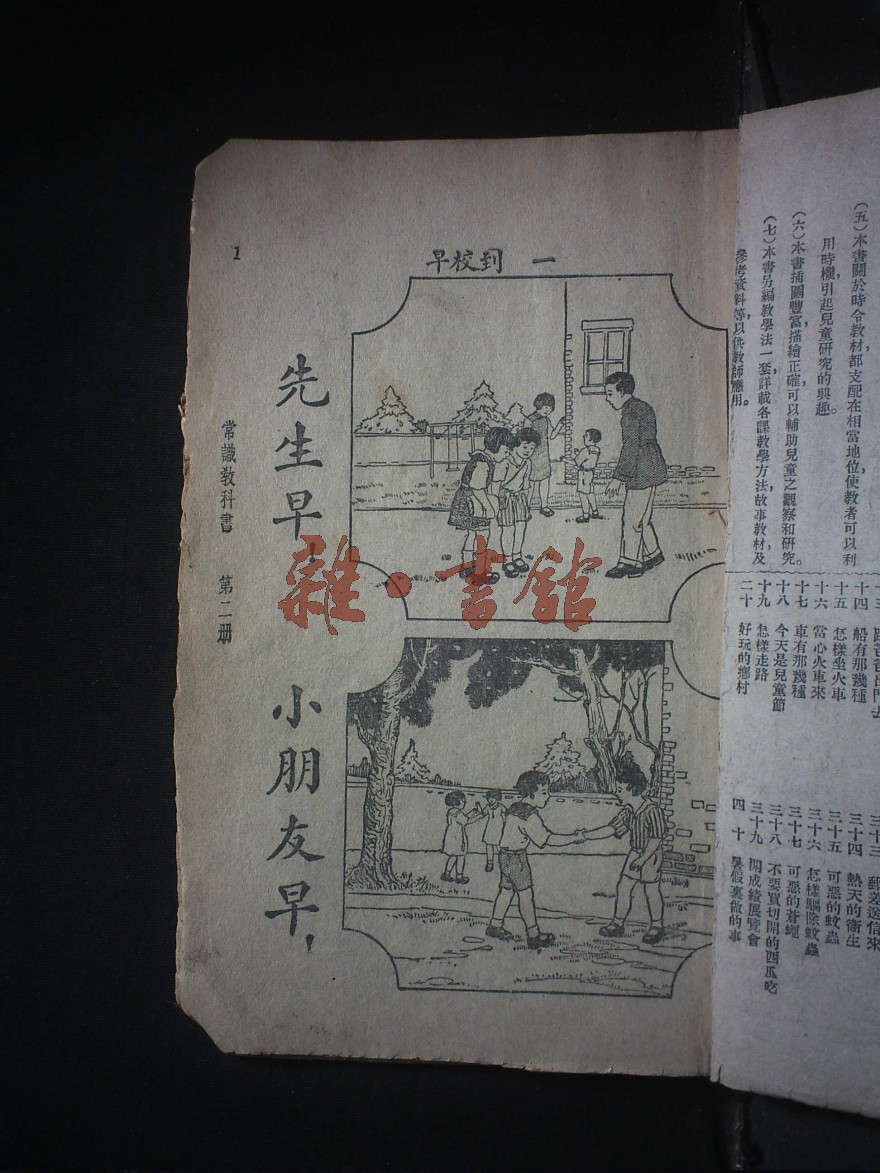 (五)本書關於時令教材都支配在相當地位，使教者可以利
用時機，引起兒童研究的興趣。
(六)本書插圖豐富，描繪正確，可以輔助兒童之觀察和研究。
(七)本書另編教學法一套，詳載各課教學方法，故事教材，及
參考資料等，以供教師應用。
十四 船有那幾種
十五 怎樣坐火車
十六 當心火車來
十七 車有那幾種
十八 今天是兒童節
十九 怎樣走路
二十 好玩的鄉村
三十三 郵差送信來
三十四 熱天的衛生
三十五 可惡的蚊蟲
三十六 怎樣驅除蚊蟲
三十七 可惡的蒼蠅
三十八 不要買切開的西瓜吃
三十九 開成績展覽會
四十 暑假裏做的事
一 到校早
先生早！
小朋友早！
常識教科書 第二册
1
雜·書館